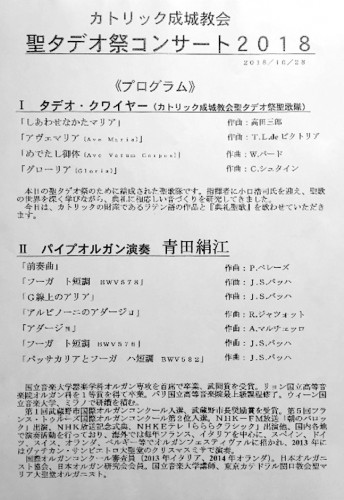 カトリック成城教会
聖タデオ祭コンサート2018
2018/10/28
《プログラム》
Ⅰ タデオ・クワイヤー（カトリック成城教会聖タデオ祭聖歌隊）
「しあわせなかたマリア」 作曲：高田三郎
「アヴェマリア（Ave Maria）」 作曲：T.L.de ビクトリア
「めでたし御体（Ave Verum Corpus）」 作曲：W.バード
「グローリア（Gloria）」 作曲：C.シュタイン
本日の聖タデオ祭のために結成された聖歌隊です。指揮者に小口浩司氏を迎え、聖歌
の世界を深く学びながら、典礼に相応しい音づくりを研究してきました。
今日は、カトリックの財産であるラテン語の作品と『典礼聖歌』を歌わせていただき
ます。
Ⅱ パイプオルガン演奏 青田絹江
「前奏曲」 作曲：P.ベレーズ
「フーガ ト短調 BWV578」 作曲：J.S.バッハ
「G線上のアリア」 作曲：J.S.バッハ
「アルビノーニのアダージョ」 作曲：R.ジャツォット
「アダージョ」 作曲：A.マルチェッロ
「フーガ ト短調 BWV578」 作曲：J.S.バッハ
「パッサカリアとフーガ ハ短調 BWV582」 作曲：J.S.バッハ
国立音楽大学器楽学科オルガン専攻を首席で卒業、武岡賞を受賞。リヨン国立高等音
楽院オルガン科を1等賞を得て卒業。パリ国立高等音楽院最上級課程修了。ウィーン国
立音楽大学、ミラノで研鑽を積む。
第1回武蔵野市国際オルガンコンクール入選、武蔵野市長奨励賞を受賞。第5回フラ
ンス・トゥルーズ国際オルガンコンクール第2位入選。NHK-FM放送「朝のバロッ
ク」出演、NHK放送記念式典、NHKEテレ「ららら クラシック」出演他、国内各地
で演奏活動を行っており、海外では毎年フランス、イタリアを中心に、スペイン、ドイ
ツ、スイス、オランダ、ベルギー等でオルガンフェスティヴァルに招かれ、2013年に
はヴァチカン・サンピエトロ大聖堂のクリスマスミサで演奏。
国際オルガンコンクール審査員（2013年イタリア、2014年オランダ）。日本オルガニ
スト協会、日本オルガン研究会会員。国立音楽大学講師、東京カテドラル関口教会聖マ
リア大聖堂オルガニスト。